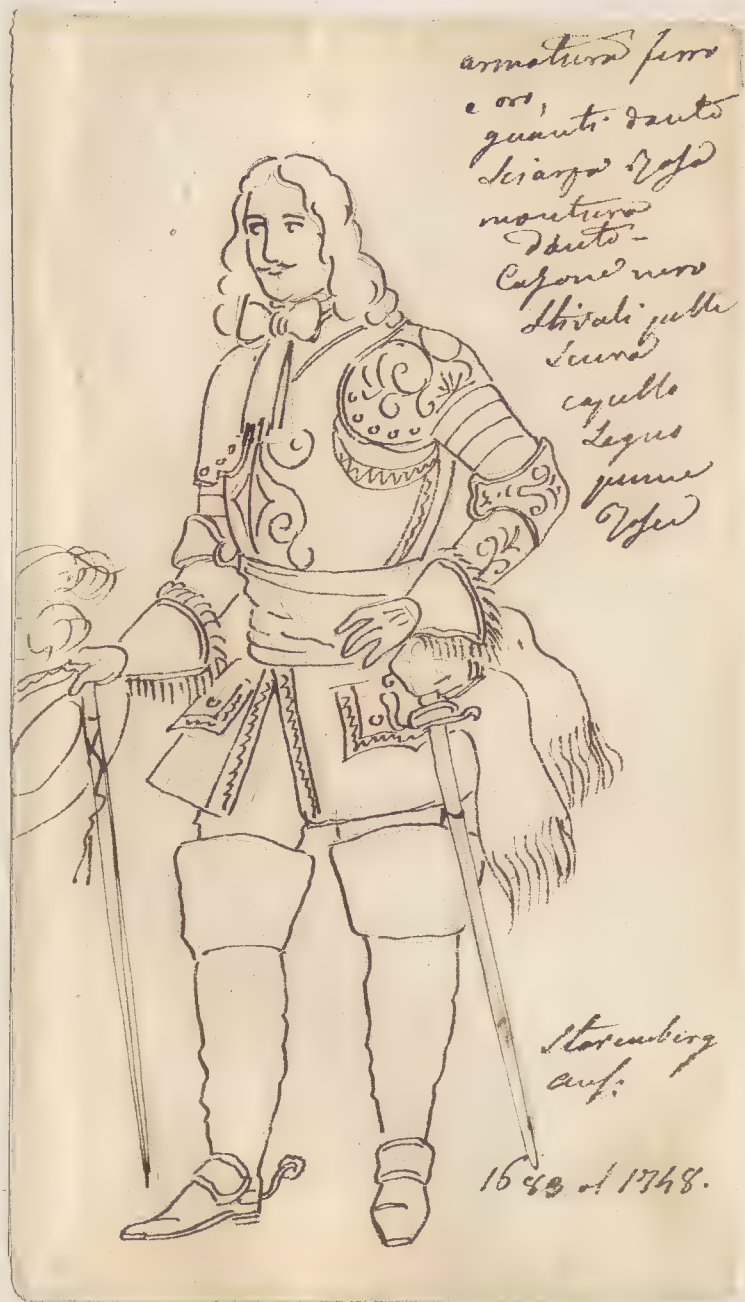 armatura ferro
e oro,
guanti danto
Sciarpa Rosa
montura
danto-
Calzone nero
Stivali pelle
Scura
capello
Legno
piume
Rose
Staremberg
1683 al 1748.